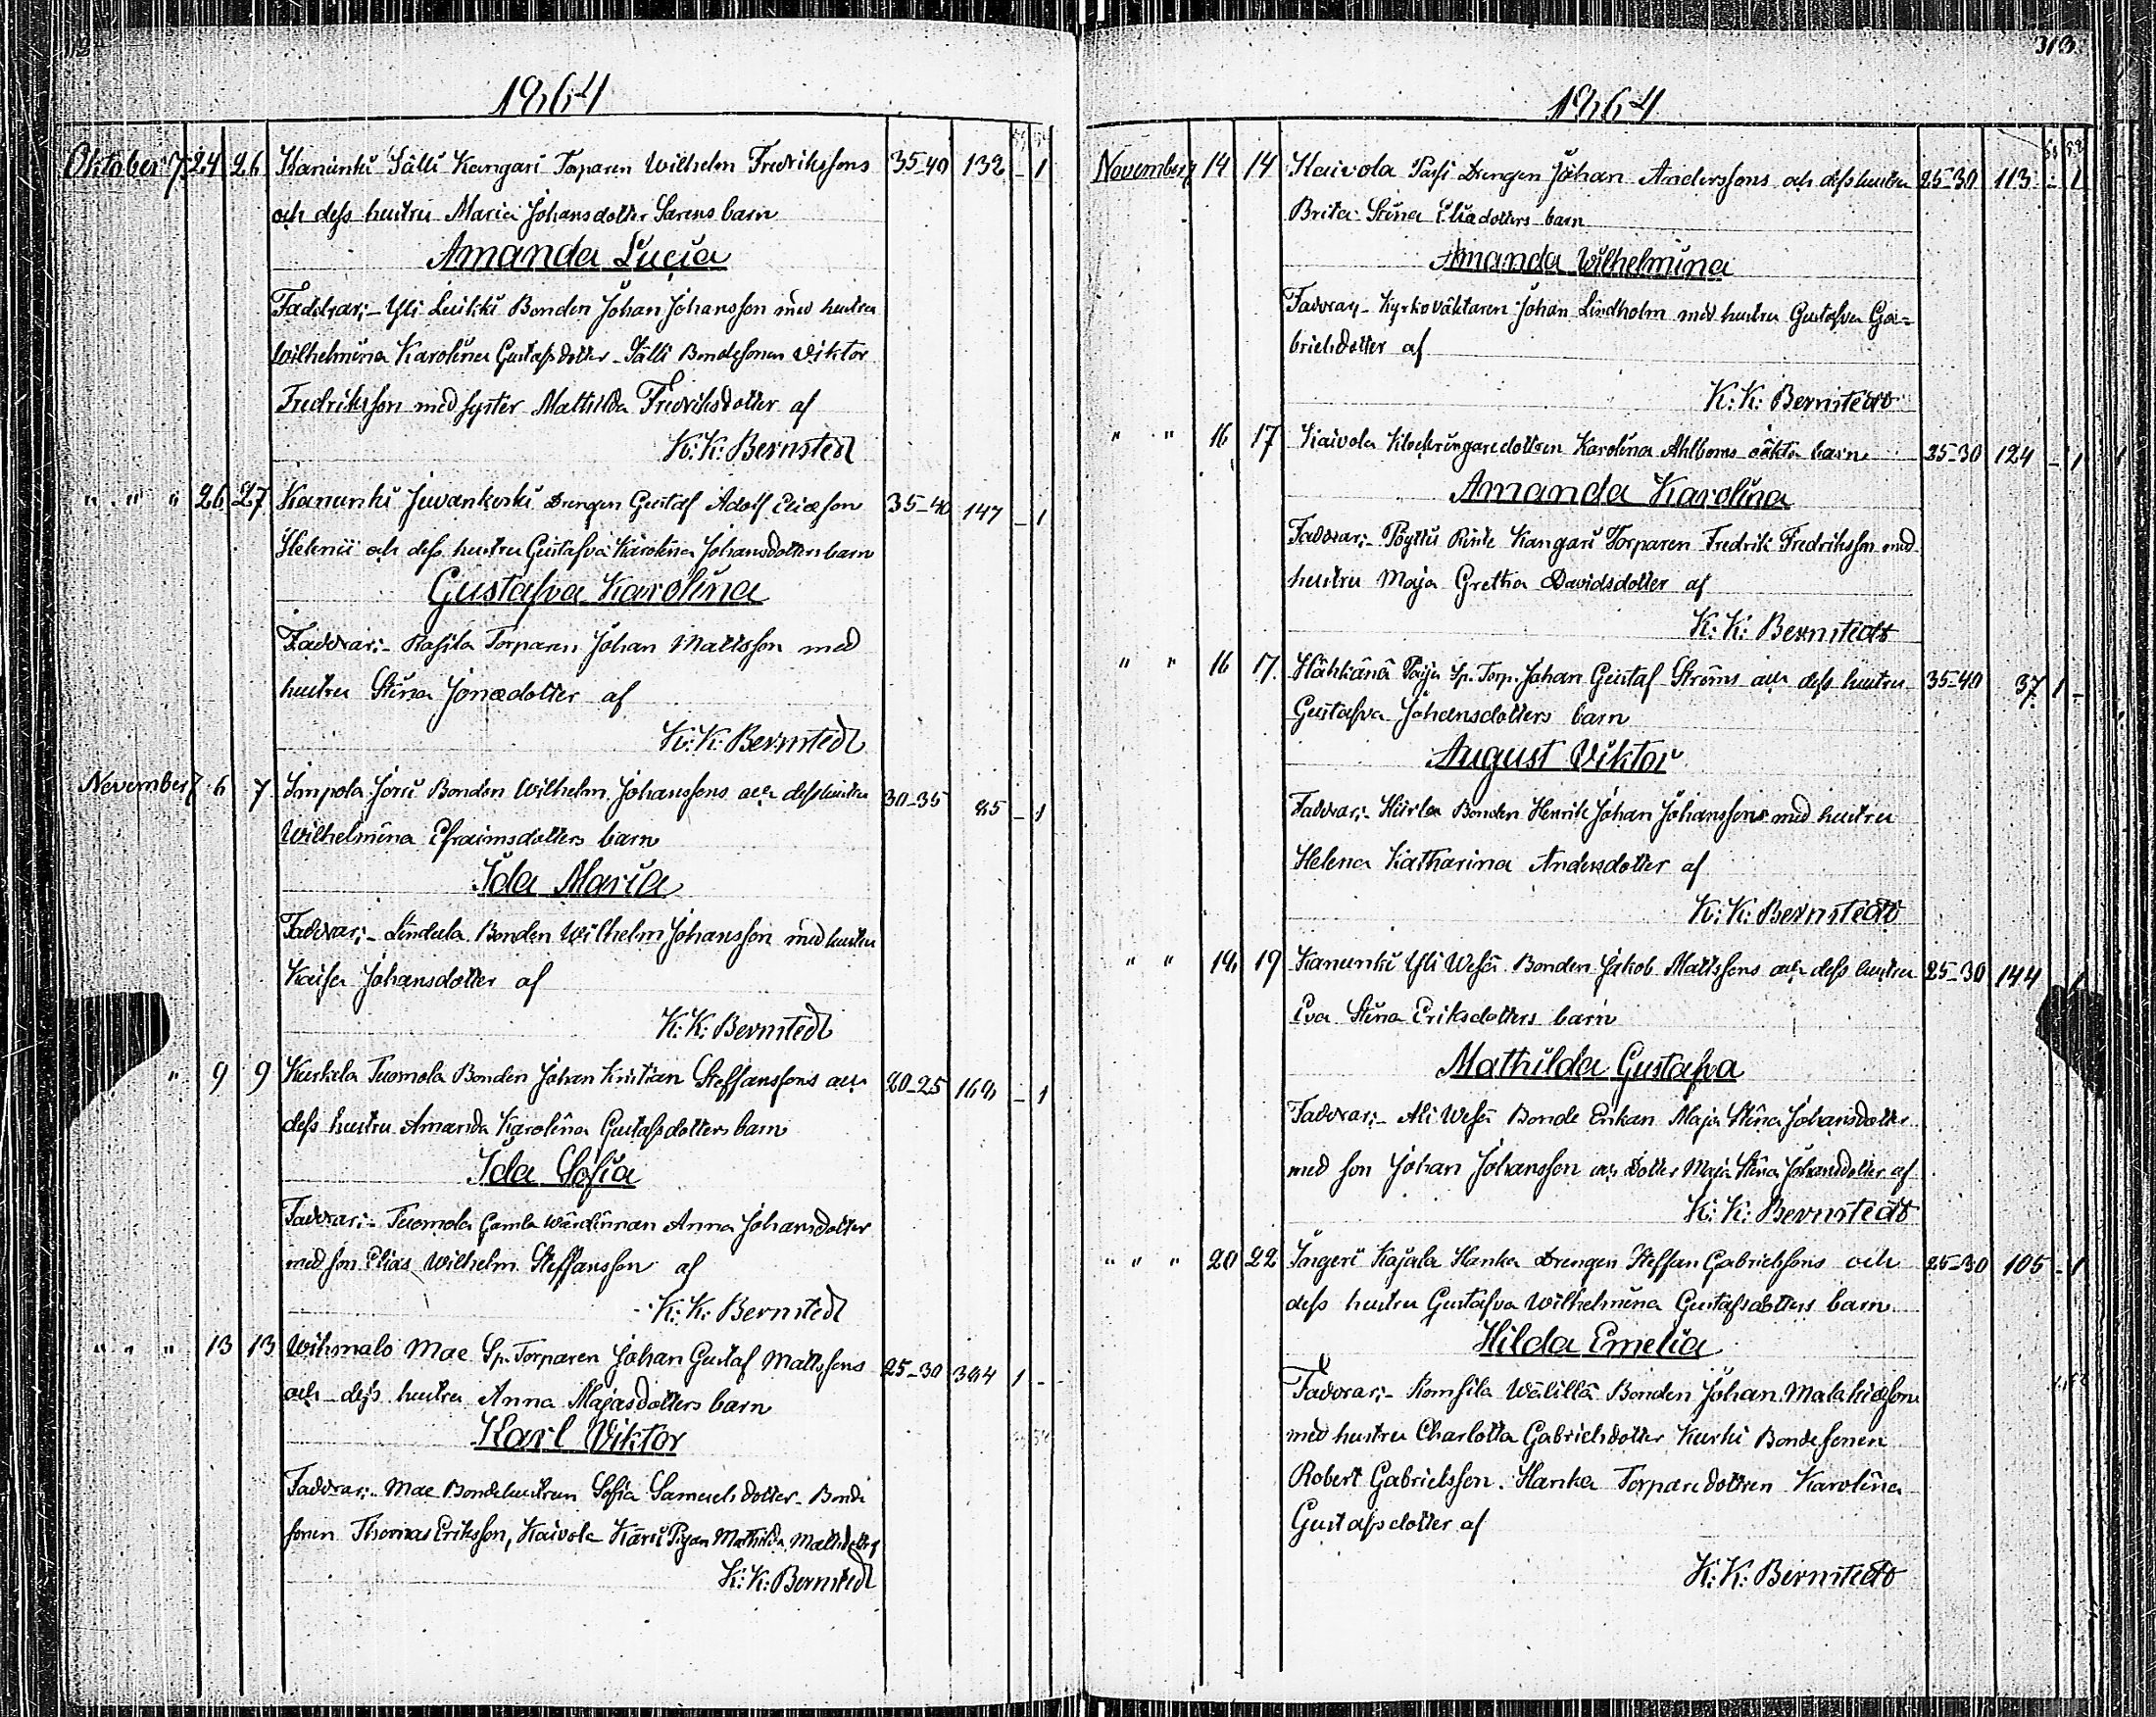 1864
Oktober 24 26 Kanunki Jälli Kangari Torparen Wilhelm Fredrikssons 35-40 132 - 1
och dess hustru Maria Johansdotter Sarens barn
Amanda Lucia
Faddrar:- Yli Leikki Bonden Johan Johansson med hustru
Wilhelmina Karolina Gustafsdotter - Jälli Bondesonen Viktor
Fredriksson med syster Mathilda Fredriksdotter af
K: K: Bernstedt
" " " 26 27 Kanunki Juvankoski Drengen Gustaf Adolf Eliæson 35-40 147 - 1
Helenii och dess hustru Gustafva Karolina Johansdotters barn
Gustafva Karolina
Faddrar:- Rasila Torparen Johan Mattsson med
hustru Stina Jonædotter af
K: K: Bernstedt
November 6 7 Simpola Jorri Bonden Wilhelm Johanssons och dess hustru 30-35 85 - 1
Wilhelmina Efraimsdotters barn
Ida Maria
Faddrar:- Lindula Bonden Wilhelm Johansson med hustru
Kaisa Johansdotter af
K: K: Bernstedt
" 9 9 Kuskela Tuomola Bonden Johan Kristian Steffanssons och 20-25 168 - 1
dess hustru Amanda Karolina Gustafsdotters barn
Ida Sofia
Faddrar:- Tuomola Gamla wärdinnan Anna Johansdotter
med son Elias Wilhelm Steffansson af
K: K: Bernstedt
" " " 13 13 Wihmalo Mae Sp. Torparen Johan Gustaf Mattssons 25-30 394 1 -
och dess hustru Anna Majasdotters barn
Karl Viktor
Faddrar:- Mae Bondehustrun Sofia Samuelsdotter - Bonde
sonen Thomas Eriksson, Kaivola Karri Pigan Mathilda Mattsdotter
K: K: Bernstedt
313
1864
November 14 14 Kaivola Passi Drengen Johan Anderssons och dess hustru 25-30 113 - 1
Brita Stina Eliædotters barn
Amanda Wilhelmina
Faddrar:- Kyrkoväktaren Johan Lindholm med hustru Gustafva Ga=
brielsdotter af
K: K: Bernstedt
" " 16 17 Kaivola Klockringaredottren Karolina Ahlboms oäkta barn 25-30 124 - 1
Amanda Karolina
Faddrar:- Pöyttis Rinte Kangari Torparen Fredrik Fredriksson med
hustru Maja Gretha Davidsdotter af
K: K: Bernstedt
" " 16 17 Hähkänä Paija Sp. Torp. Johan Gustaf Ströms och dess hustru 35-40 37 1 -
Gustafva Johansdotters barn
August Viktor
Faddrar:- Hiirla Bonden Henrik Johan Johanssons med hustru
Helena Katharina Andersdotter af
K: K: Bernstedt
" " 18 19 Kanunki Yli Wesa Bonden Jakob Mattssons och dess hustru 25-30 144 1
Eva Stina Eriksdotters barn
Mathilda Gustafva
Faddrar:- Ali Wesa Bonde Enkan Maja Stina Johansdotter
med son Johan Johansson och dotter Maja Stina Johansdotter af
K: K: Bernstedt
" " " 20 22 Ingeri Kajala Hanka Drengen Steffan Gabrielssons och 25-30 105 - 1
dess hustru Gustafva Wilhelmina Gustafsdotters barn
Hilda Emelia
Faddrar:- Romsila Wälillä Bonden Johan Malakiæsson
med hustru Charlotta Gabrielsdotter Kurki Bondesonen
Robert Gabrielsson. Hanka Torparedottren Karolina
Gustafsdotter af
K: K: Bernstedt